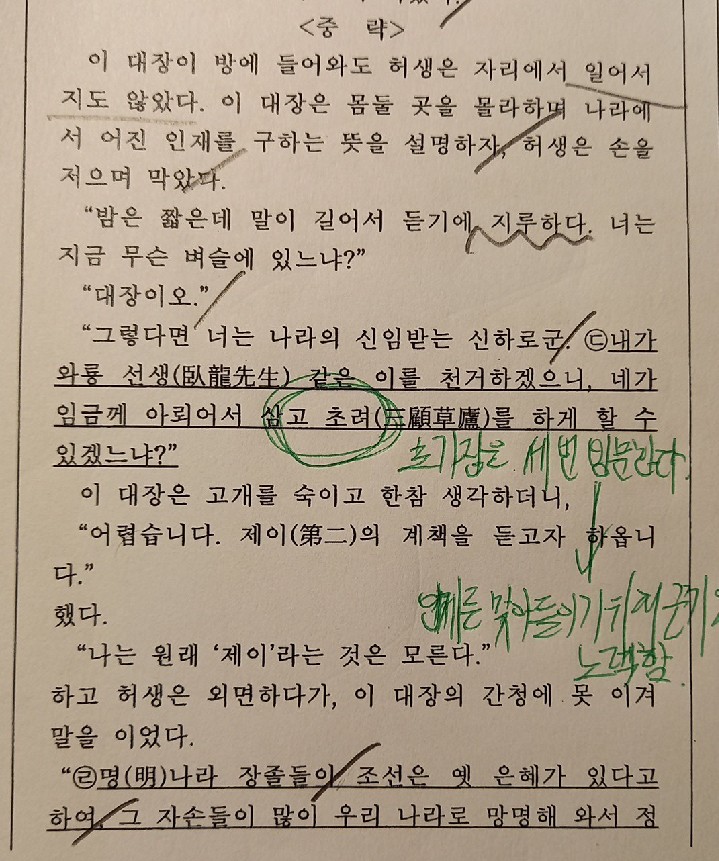 <중 략>
이 대장이 방에 들어와도 허생은 자리에서 일어서
지도 않았다. 이 대장은 몸둘 곳을 몰라하며 나라에
서 어진 인재를 구하는 뜻을 설명하자, 허생은 손을
저으며 막았다.
“밤은 짧은데 말이 길어서 듣기에 지루하다. 너는
지금 무슨 벼슬에 있느냐?”
“대장이오.”
“그렇다면 너는 나라의 신임받는 신하로군. ㉢내가
와룡 선생(臥龍先生) 같은 이를 천거하겠으니, 네가
임금께 아뢰어서 삼고 초려(三顧草廬)를 하게 할 수
있겠느냐?”
초가집을 세 번
이 대장은 고개를 숙이고 한참 생각하더니,
“어렵습니다. 제이(第二)의 계책을 듣고자 하옵니
다.”
맞아들이기 위해 끈기
했다.
노력함.
“나는 원래 ‘제이’라는 것은 모른다.”
하고 허생은 외면하다가, 이 대장의 간청에 못 이겨
말을 이었다.
“㉣명(明)나라 장졸들이 조선은 옛 은혜가 있다고
하여, 그 자손들이 많이 우리 나라로 망명해 와서 정